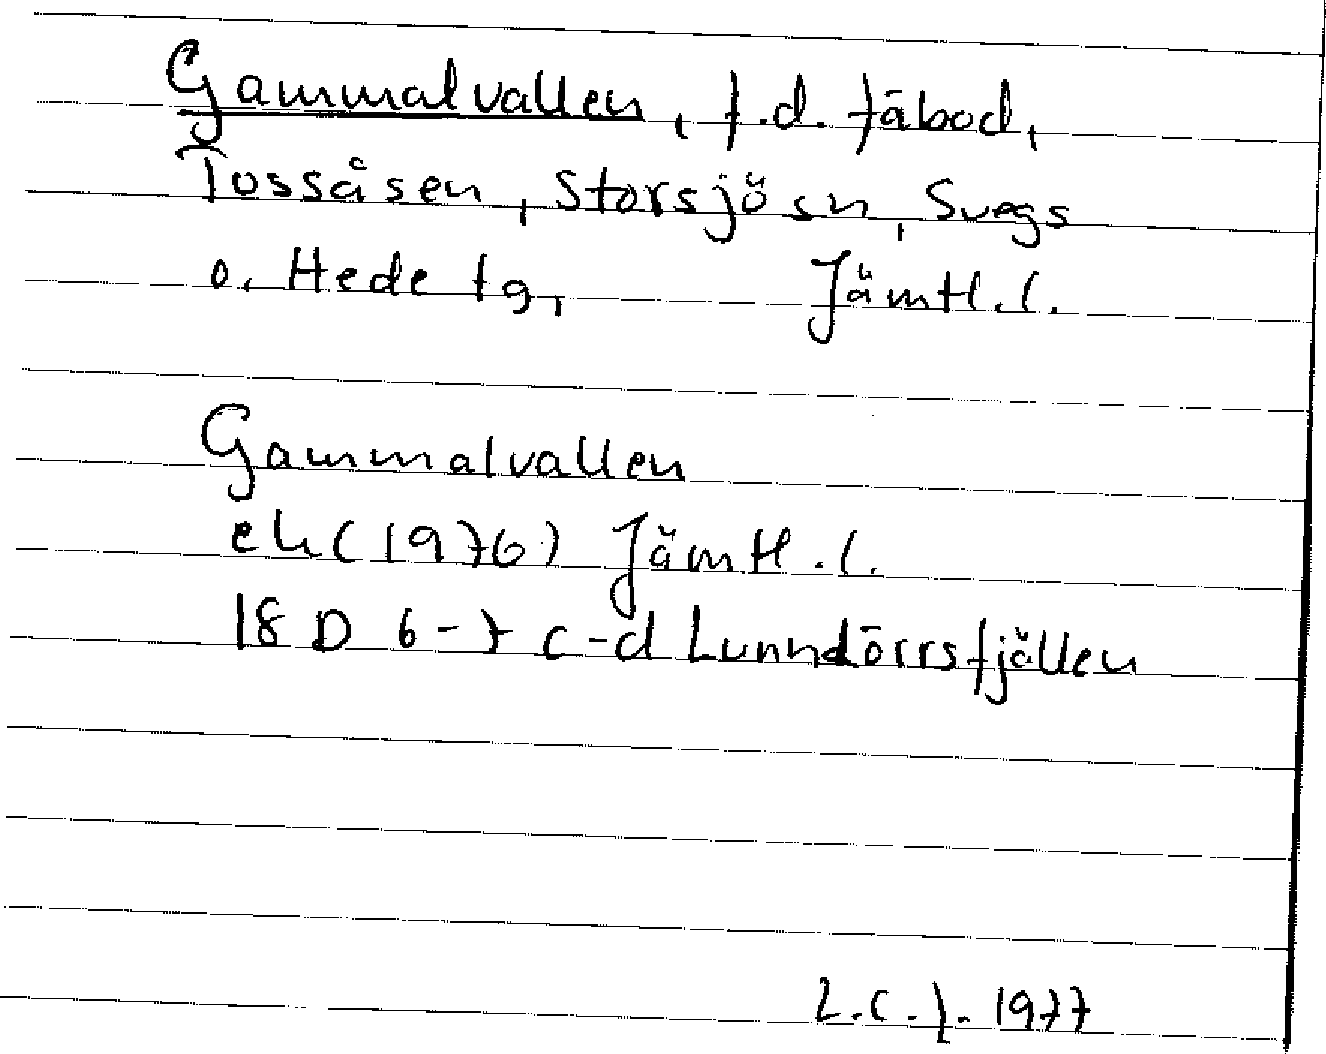 Gammalvallen, f.d. fäbod,
Tossåsen, Storsjö sn, Svegs
o. Hede tg, Jämtl. l.
Gammalvallen
ek (1976) Jämtl. l.
18 D 6-7 c-d Lunndörrsfjällen
L.C.J. 1977